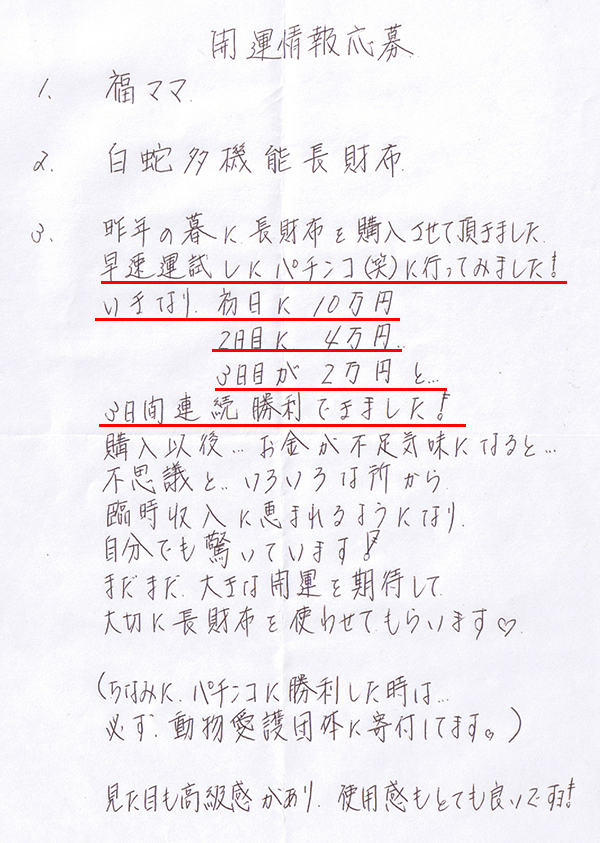 開運情報応募
1. 福ママ
2. 白蛇多機能長財布
3. 昨年の暮に長財布を購入させて頂きました
早速運試しにパチンコ(笑)に行ってみました!
いきなり初日に10万円
2日目に4万円
3日目が2万円と…
3日間連続勝利できました!
購入以後…お金が不足気味になると…
不思議と…いろいろな所から
臨時収入に恵まれるようになり
自分でも驚いています!
まだまだ大きな開運を期待して
大切に長財布を使わせてもらいます♡
(ちなみに、パチンコに勝利した時は…
必ず、動物愛護団体に寄付してます。)
見た目も高級感があり、使用感もとても良いです!